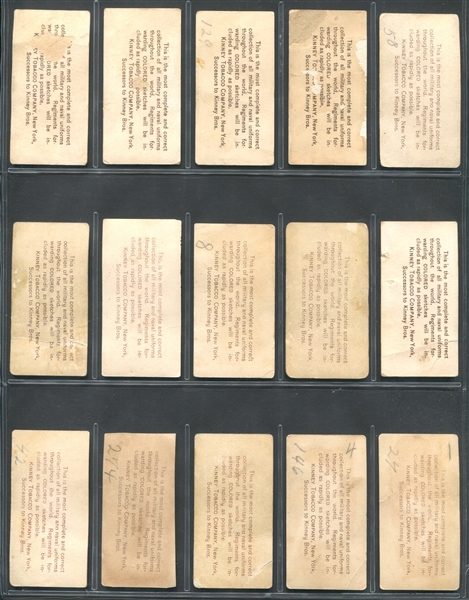 is the most complete and correct
collection of all military and naval uniforms
throughout the world. Regiments for-
warding COLORED sketches will be in-
cluded as rapidly as possible.
TOBACCO COMPANY, New York,
Successors to Kinney Bros.
This is the most complete and correct
collection of all military and naval uniforms
throughout the world. Regiments for-
warding COLORED sketches will be in-
cluded as rapidly as possible.
KINNEY TOBACCO COMPANY, New York,
Successors to Kinney Bros.
128
This is the most complete and correct
collection of all military and naval uniforms
throughout the world. Regiments for-
warding COLORED sketches will be in-
cluded as rapidly as possible.
KINNEY TOBACCO COMPANY, New York,
Successors to Kinney Bros.
This is the most complete and correct
collection of all military and naval uniforms
throughout the world. Regiments for-
warding COLORED sketches will be in-
cluded as rapidly as possible.
KINNEY New York,
Successors to Kinney Bros.
58
This is the most complete and correct
collection of all military and naval uniforms
throughout the world. Regiments for-
warding COLORED sketches will be in-
cluded as rapidly as possible.
KINNEY TOBACCO COMPANY, New York,
Successors to Kinney Bros.
This is the most complete and
collection of all military and naval uniforms
throughout the world. Regiments for-
warding COLORED sketches will be in-
cluded as rapidly as possible.
KINNEY TOBACCO COMPANY, New York,
Successors to Kinney Bros.
This is the most complete and correct
collection of all military and naval uniforms
throughout the world. Regiments for-
warding COLORED sketches will be in-
cluded as rapidly as possible.
KINNEY TOBACCO COMPANY, New York,
Successors to Kinney Bros.
8
This is the most complete and correct
collection of all military and naval uniforms
throughout the world. Regiments for-
warding COLORED sketches will be in-
cluded as rapidly as possible.
KINNEY TOBACCO COMPANY, New York,
Successors to Kinney Bros.
This is the most complete and correct
collection of all military and naval uniforms
throughout the world. Regiments for-
warding COLORED sketches will be in-
cluded as rapidly as possible.
KINNEY TOBACCO COMPANY, New York,
Successors to Kinney Bros.
This is the most complete and correct
collection of all military and naval uniforms
throughout the world. Regiments for-
warding COLORED sketches will be in-
cluded as rapidly as possible.
KINNEY TOBACCO COMPANY, New York,
Successors to Kinney Bros.
This is the most complete and correct
collection of all military and naval uniforms
throughout the world. Regiments for-
warding COLORED sketches will be in-
cluded as rapidly as possible.
KINNEY TOBACCO COMPANY, New York,
Successors to Kinney Bros.
This is the most complete and correct
collection of all military and naval uniforms
throughout the world. Regiments for-
warding COLORED sketches will be in-
cluded as rapidly as possible.
KINNEY TOBACCO COMPANY, New York,
Successors to Kinney Bros.
This is the most complete and correct
collection of all military and naval uniforms
throughout the world. Regiments for-
warding COLORED sketches will be in-
cluded as rapidly as possible.
KINNEY TOBACCO COMPANY, New York,
Successors to Kinney Bros.
146
This is the most complete and correct
collection of all military and naval uniforms
throughout the world. Regiments for-
warding COLORED sketches will be in-
cluded as rapidly as possible.
KINNEY TOBACCO COMPANY, New York,
Successors to Kinney Bros.
24
This is the most complete and correct
collection of all military and naval uniforms
throughout the world. Regiments for-
warding COLORED sketches will be in-
cluded as rapidly as possible.
KINNEY TOBACCO COMPANY, New York,
Successors to Kinney Bros.